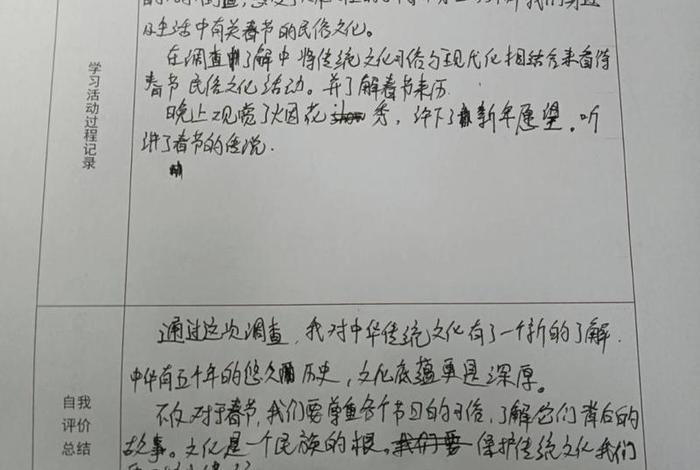 日生活中有关春节的民俗文化。
在调查中了解中将传统文化习俗与现代化相结合来看待
春节民俗文化活动。并了解春节来历.
晚上观赏了烟花秀，许下了新年愿望。听
讲了春节的传说.
学习活动过程记录
通过这次调查，我对中华传统文化有了一个新的了解.
中华有五千年的悠久历史，文化底蕴更是深厚。
不仅对于春节，我们要尊重各个节日的习俗，了解它们背后的
故事。文化是一个民族的根。保护传统文化我们
自我
评价
总结